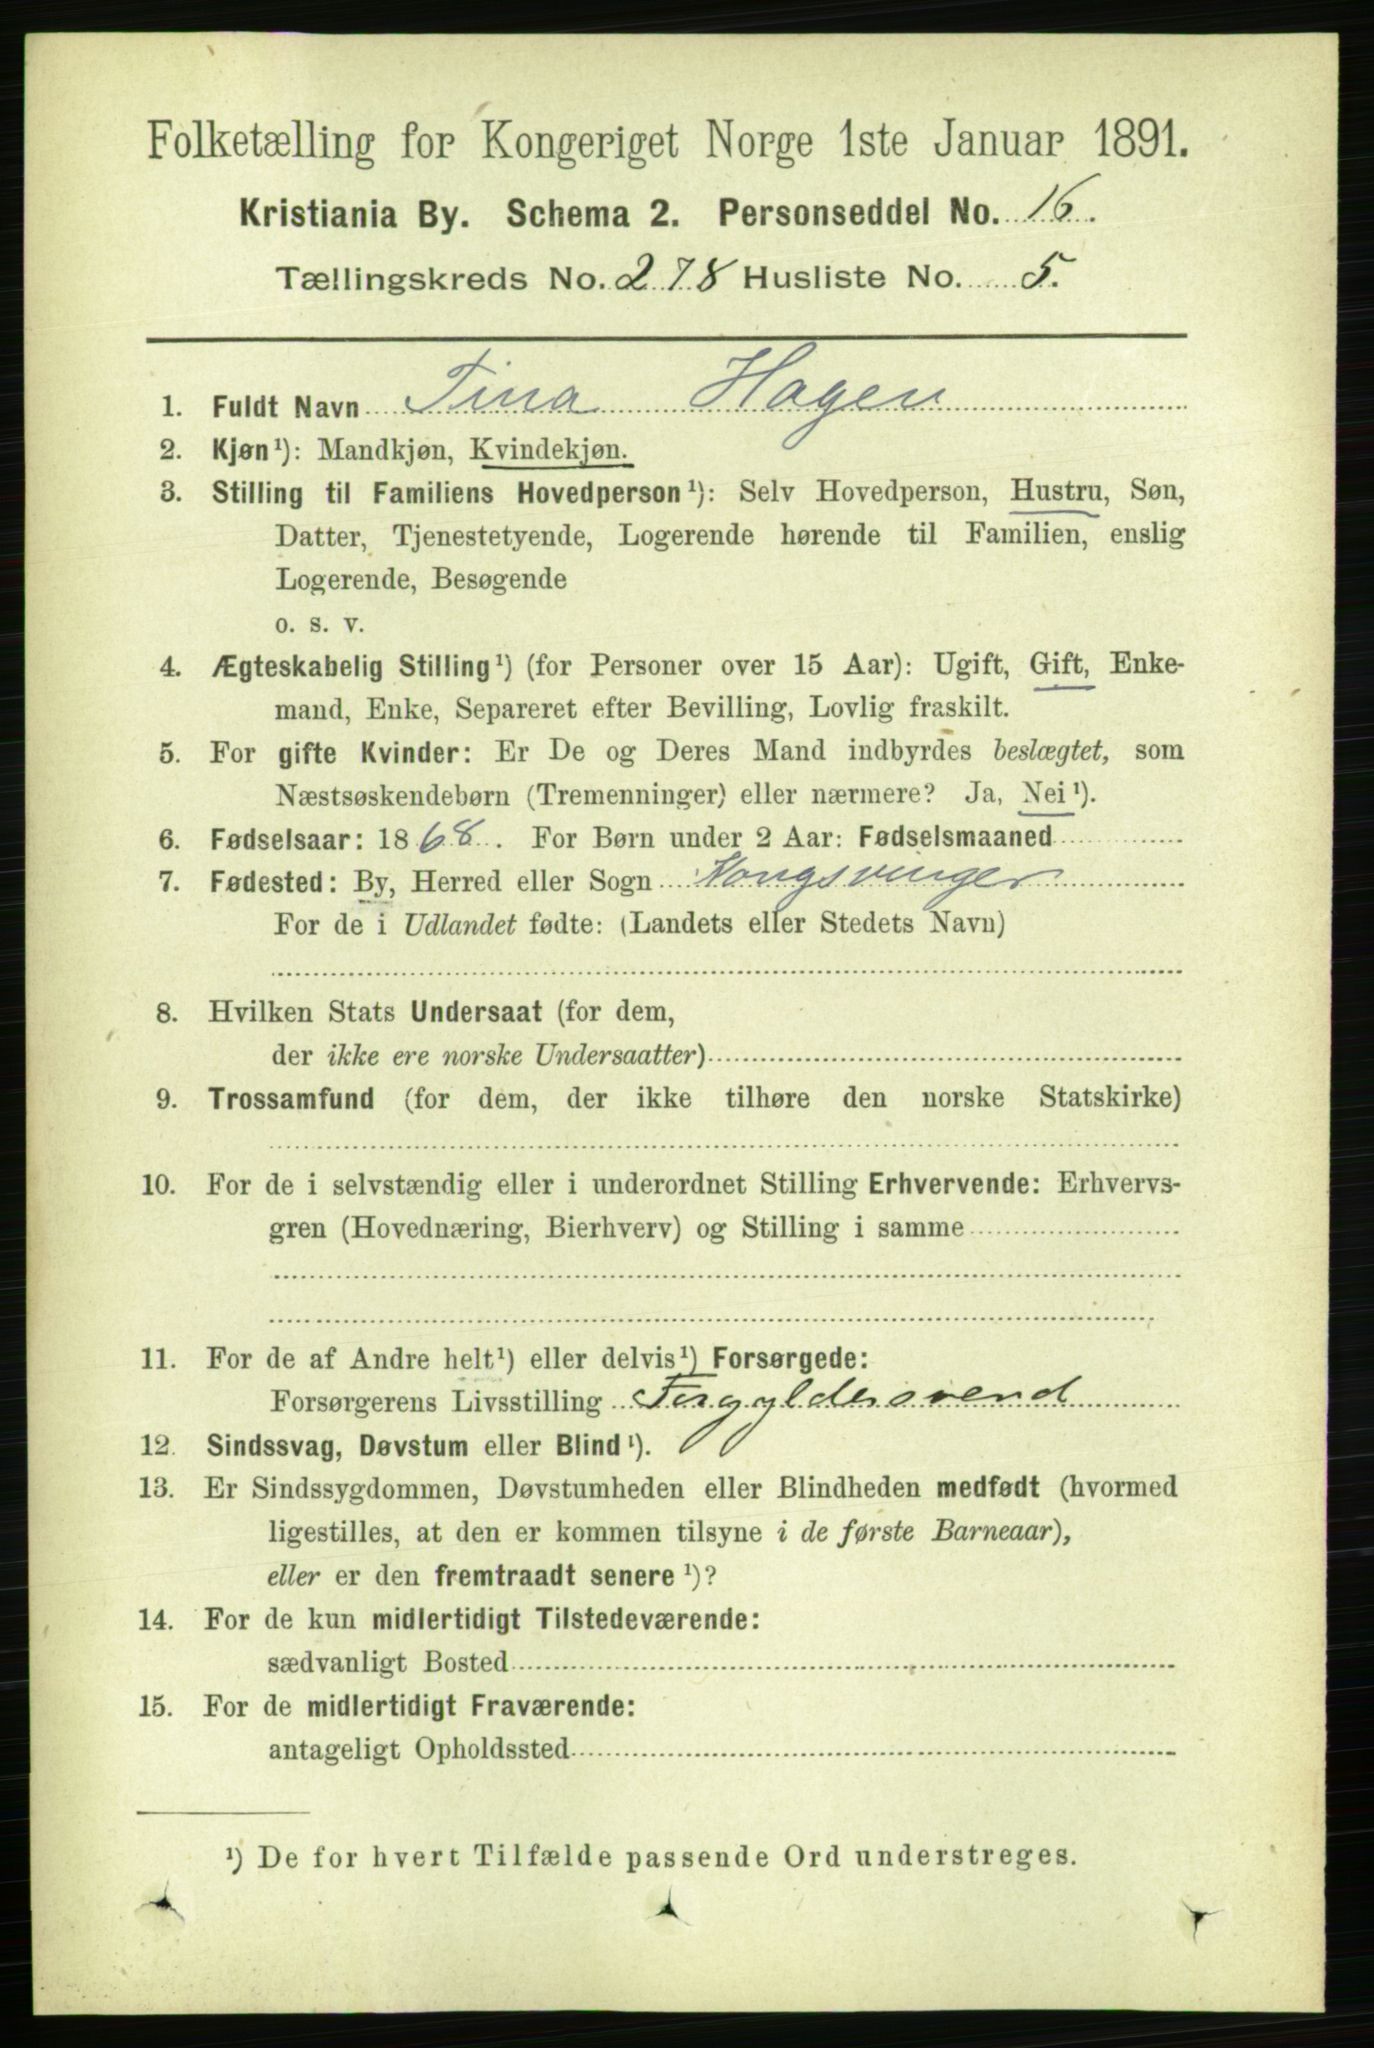 Folketælling for Kongeriget Norge 1ste Januar 1891.
Kristiania By. Schema 2. Personseddel No. 16.
Tællingskreds No. 278 Husliste No. 5.
1. Fuldt Navn Tina Hagen
2. Kjøn¹): Mandkjøn, Kvindekjøn.
3. Stilling til Familiens Hovedperson¹): Selv Hovedperson, Hustru, Søn,
Datter, Tjenestetyende, Logerende hørende til Familien, enslig
Logerende, Besøgende
o. s. v.
4. Ægteskabelig Stilling¹) (for Personer over 15 Aar): Ugift, Gift, Enke-
mand, Enke, Separeret efter Bevilling, Lovlig fraskilt.
5. For gifte Kvinder: Er De og Deres Mand indbyrdes beslægtet, som
Næstsøskendebørn (Tremenninger) eller nærmere? Ja, Nei¹).
6. Fødselsaar: 1868. For Børn under 2 Aar: Fødselsmaaned
7. Fødested: By, Herred eller Sogn Kongsvinger
For de i Udlandet fødte: (Landets eller Stedets Navn)
8. Hvilken Stats Undersaat (for dem,
der ikke ere norske Undersaatter)
9. Trossamfund (for dem, der ikke tilhøre den norske Statskirke)
10. For de i selvstændig eller i underordnet Stilling Erhvervende: Erhvervs-
gren (Hovednæring, Bierhverv) og Stilling i samme
11. For de af Andre helt¹) eller delvis¹) Forsørgede:
Forsørgerens Livsstilling Forgyldersvend
12. Sindssvag, Døvstum eller Blind¹).
13. Er Sindssygdommen, Døvstumheden eller Blindheden medfødt (hvormed
ligestilles, at den er kommen tilsyne i de første Barneaar),
eller er den fremtraadt senere¹)?
14. For de kun midlertidigt Tilstedeværende:
sædvanligt Bosted
15. For de midlertidigt Fraværende:
antageligt Opholdssted
¹) De for hvert Tilfælde passende Ord understreges.